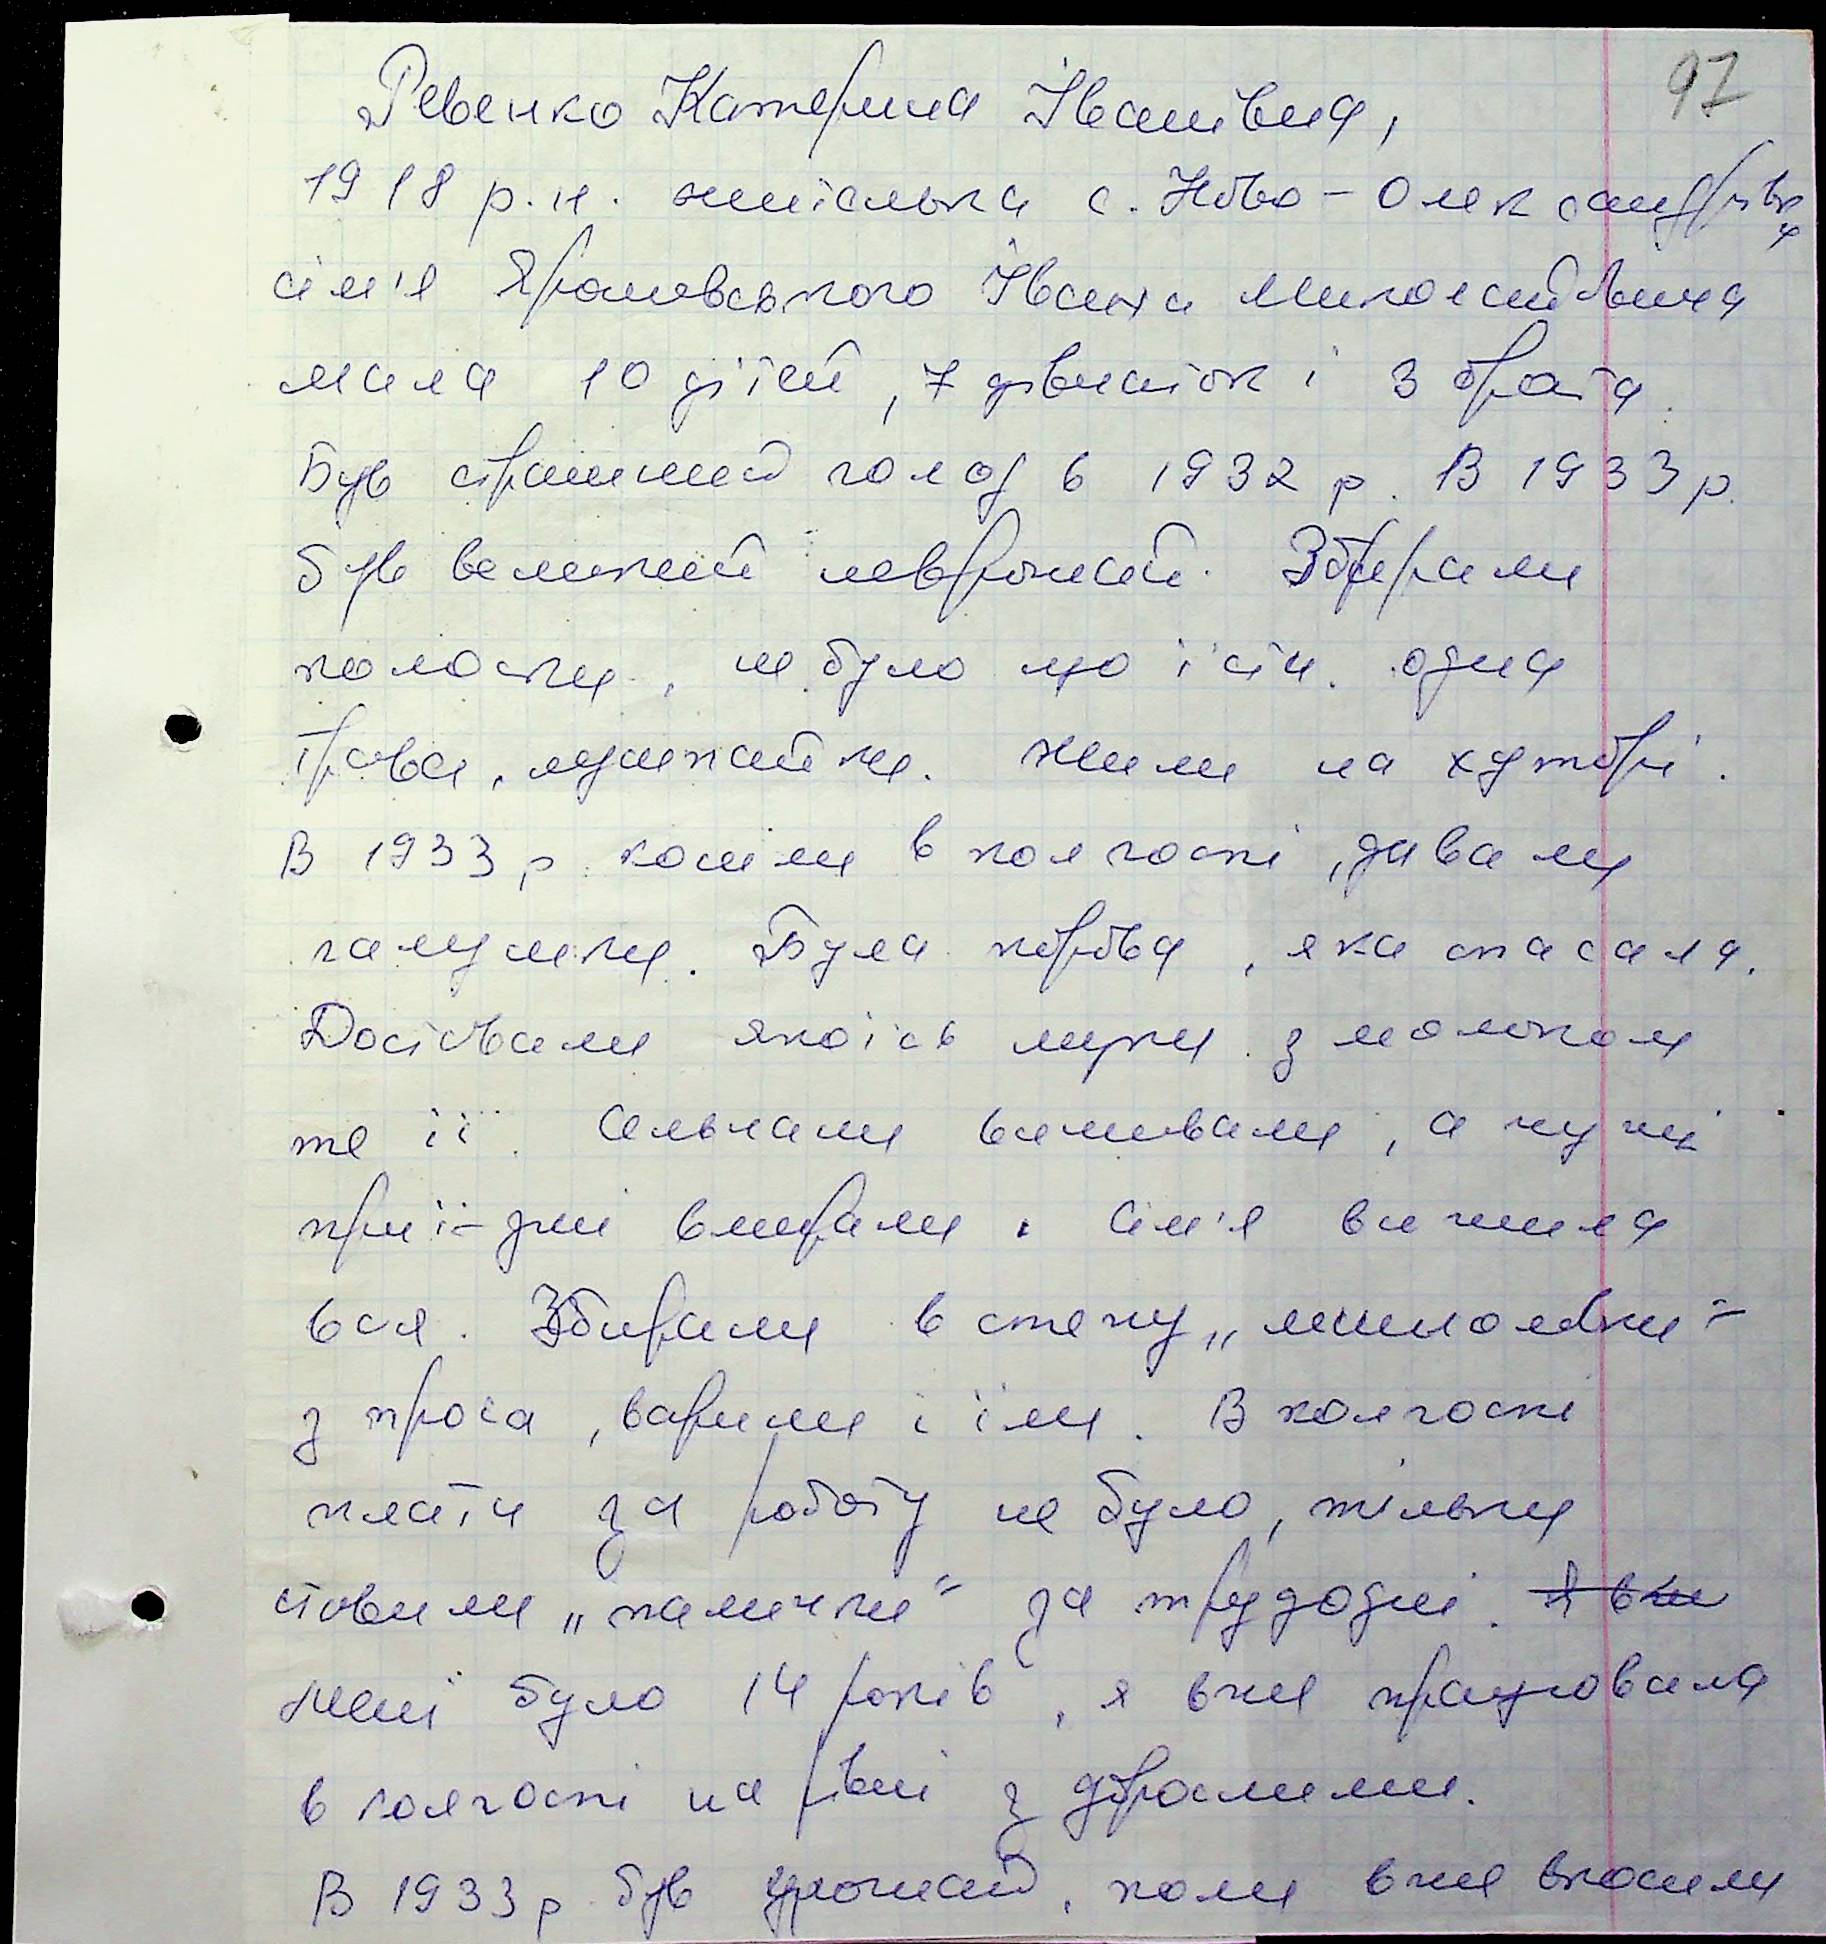 97
Ревенко Катерина Іванівна,
1918 р.н. жителька с. Ново-Олександрівка
сім'я Яромовського Івана Миколайовича
мала 10 дітей, 7 дівчаток і 3 брата.
Був страшний голод в 1932 р. В 1933 р.
був великий неврожай. Збирали
колоски, не було що їсти. одна
трава, лушпайки. Жили на хуторі.
В 1933 р. косили в колгоспі, давали
галушки. Була корова, яка спасала.
Доставали якоїсь муки з молоком
то її. Сельчани виживали, а чужі
приїзжі вмирали. Сім'я вижила
вся. Збирали в степу „миголовки"
з проса, варили і їли. В колгоспі
плати за роботу не було, тільки
ставили „палички" за трудодні. Я вже
Мені було 14 років, я вже працювала
в колгоспі на рівні з дорослими.
В 1933 р. був урожай, коли вже вкосили